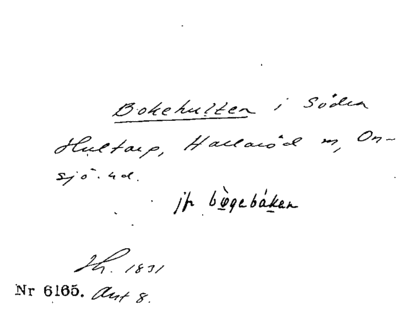 Bokehulten i Södra
Hultarp, Hallaröd m, On-
sjö hd.
jfr bögebåken
Th. 1831
Nr 6165. Ant 8.